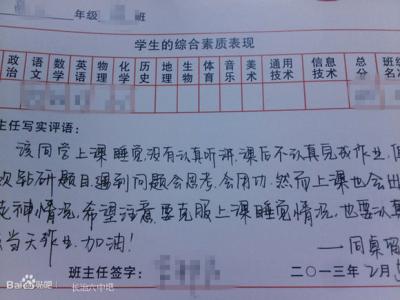 年级 班
学生的综合素质表现
政治 语文 数学 英语 物理 化学 历史 地理 生物 体育 音乐 美术 通用技术 信息技术 总分 班级
主任写实评语:
该同学上课睡觉,没有认真听讲,课后不认真完成作业,但
欢钻研题目,遇到问题会思考,会用功,然而上课也会出
走神情况,希望注意要克服上课睡觉情况,也要认真
当天作业.加油!
——同桌
班主任签字: 二○一三年 2月
Bai 百度贴吧 长治六中吧